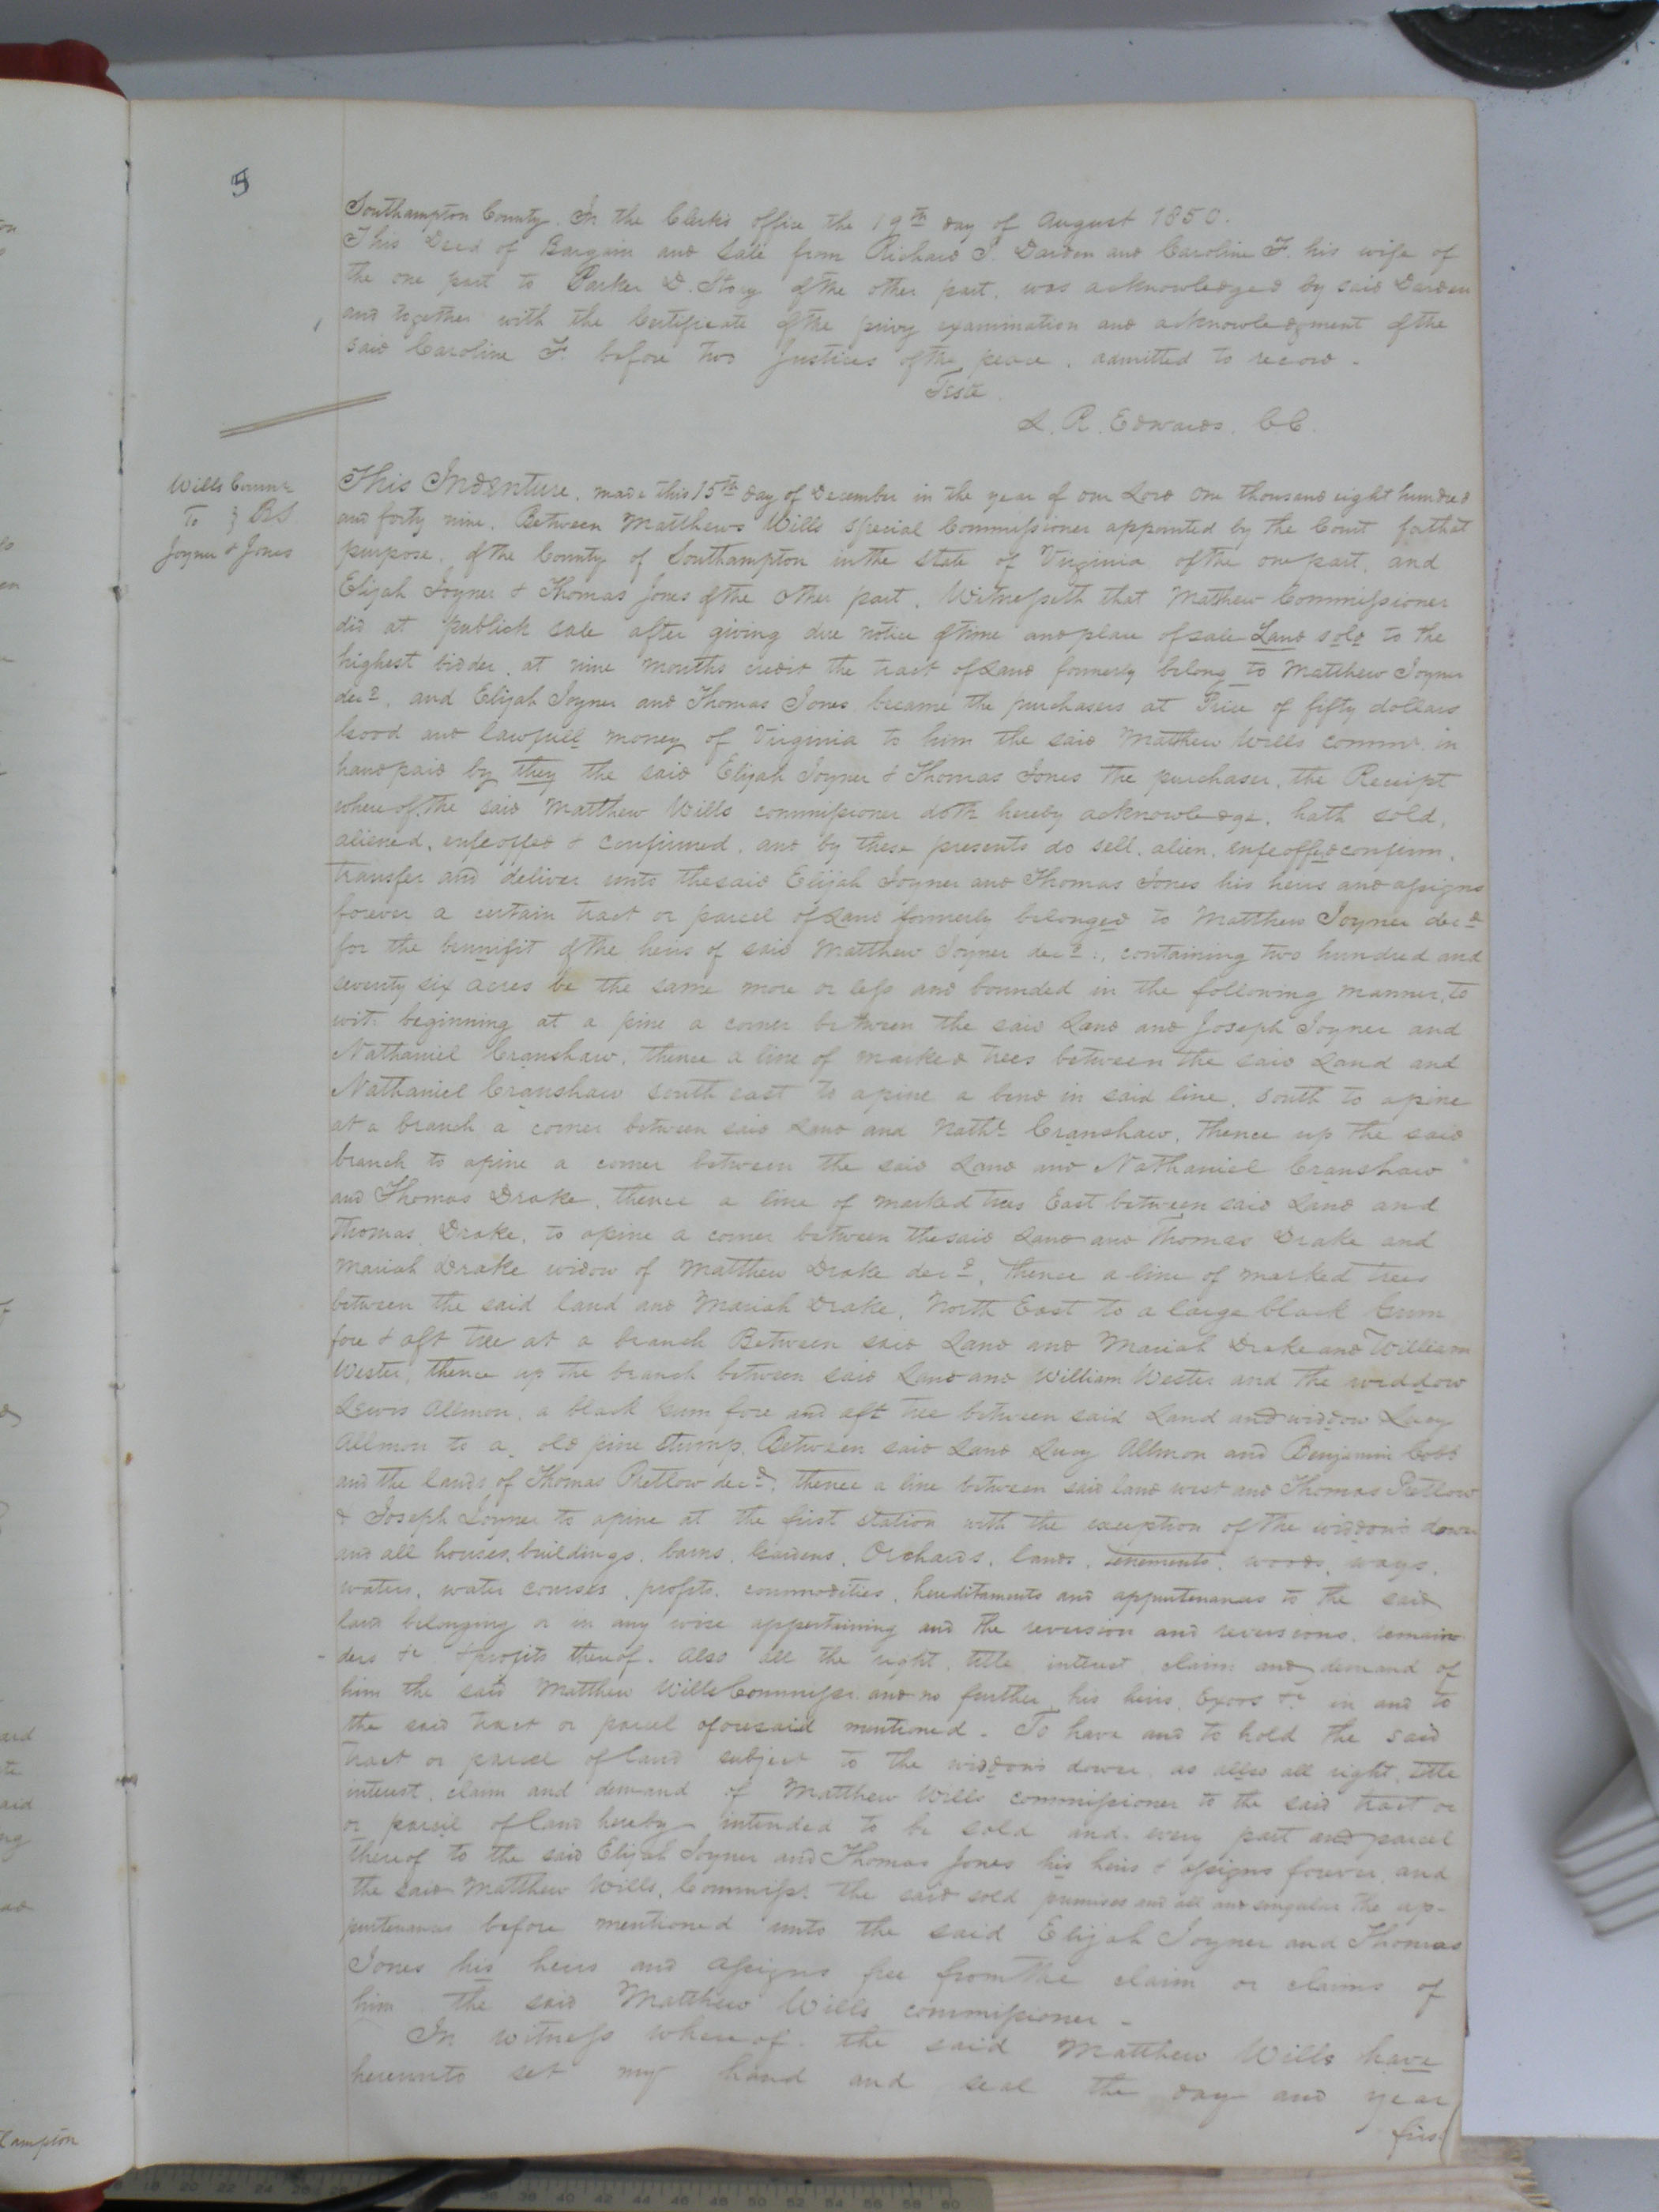 5
Southampton County. In the Clerk's office the 19th day of August 1850.
This Deed of Bargain and Sale from Richard J. Darden and Caroline F. his wife of
the one part to Parker D. Story of the other part, was acknowledged by said Darden
and together with the Certificate of the privy examination and acknowledgment of the
said Caroline F. before two Justices of the peace, admitted to record.
Teste
L. R. Edwards. C.C.
Wills Commr
To } BS
Joyner & Jones
This Indenture, made this 15th day of December in the year of our Lord one thousand eight hundred
and forty nine. Between Matthews Wills Special Commissioner appointed by the Court for that
purpose, of the County of Southampton in the State of Virginia of the one part, and
Elijah Joyner & Thomas Jones of the other part, Witnesseth that Matthew Commissioner
did at publick sale after giving due notice of time and place of sale Land sold to the
highest bidder, at nine months credit the tract of Land formerly belong to Matthew Joyner
decd, and Elijah Joyner and Thomas Jones became the purchasers at Price of fifty dollars
Good and lawfull money of Virginia to him the said Matthew Wills commr. in
hand paid by they the said Elijah Joyner & Thomas Jones the purchaser, the Receipt
where of the said Matthew Wills commissioner doth hereby acknowledge, hath sold,
aliened, enfeoffed & confirmed, and by these presents do sell, alien, enfeoffed confirm,
transfer and deliver unto the said Elijah Joyner and Thomas Jones his heirs and assigns
forever a certain tract or parcel of Land formerly belonged to Matthew Joyner decd
for the bennifit of the heirs of said Matthew Joyner decd., containing two hundred and
seventy six acres be the same more or less and bounded in the following manner, to
wit: beginning at a pine a corner between the said Land and Joseph Joyner and
Nathaniel Cranshaw, thence a line of marked trees between the said Land and
Nathaniel Cranshaw south east to a pine a bend in said line, South to a pine
at a branch a corner between said Land and Nathl Cranshaw, thence up the said
branch to a pine a corner between the said Land and Nathaniel Cranshaw
and Thomas Drake, thence a line of marked trees East between said Land and
Thomas Drake, to a pine a corner between the said Land and Thomas Drake and
Mariah Drake widow of Matthew Drake decd, thence a line of marked trees
between the said land and Mariah Drake, North East to a large black Gum
fore & aft tree at a branch Between said Land and Mariah Drake and William
Wester, thence up the branch between said Land and William Wester and the widdow
Lewis Allmon, a black gum fore and aft tree between said Land and widdow Lucy
Allmon to a old pine stump, Between said Land Lucy Allmon and Benjamin Cobb
and the lands of Thomas Pretlow decd, thence a line between said land west and Thomas Pretlow
& Joseph Joyner to a pine at the first station with the exception of the widdows dower
and all houses, buildings, barns, Gardens, Orchards, lands, tenements, woods, ways,
waters, water courses, profits, commodities, hereditaments and appurtenances to the said
land belonging or in any wise appertaining and the reversion and reversions, remain-
ders &c. & profits thereof. Also all the right, title, interest, claim and demand of
him the said Matthew Wills Commissr. and no further, his heirs, Exors &c. in and to
the said tract or parcel aforesaid mentioned. To have and to hold the said
tract or parcel of land subject to the widdows dower, as allso all right, title
interest, claim and demand of Matthew Wills commissioner to the said tract or
or parcel of land hereby intended to be sold and every part and parcel
thereof to the said Elijah Joyner and Thomas Jones his heirs & assigns forever, and
the said Matthew Wills, Commissr. the said sold premises and all and singular the ap-
purtenances before mentioned unto the said Elijah Joyner and Thomas
Jones his heirs and assigns free from the claim or claims of
him the said Matthew Wills commissioner.
In witness where of the said Matthew Wills have
hereunto set my hand and seal the day and year
first